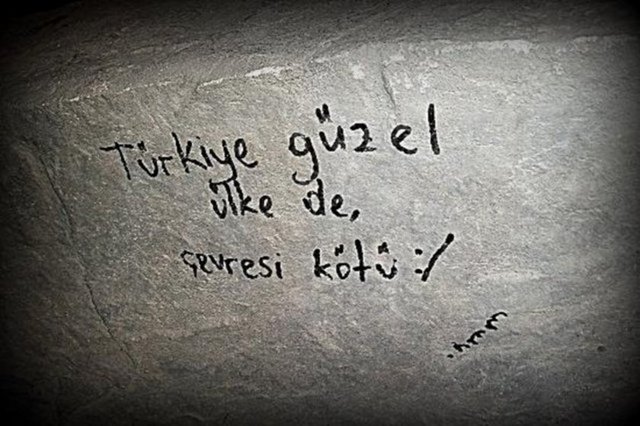 Türkiye güzel
ülke de,
çevresi kötü :/
.hmm